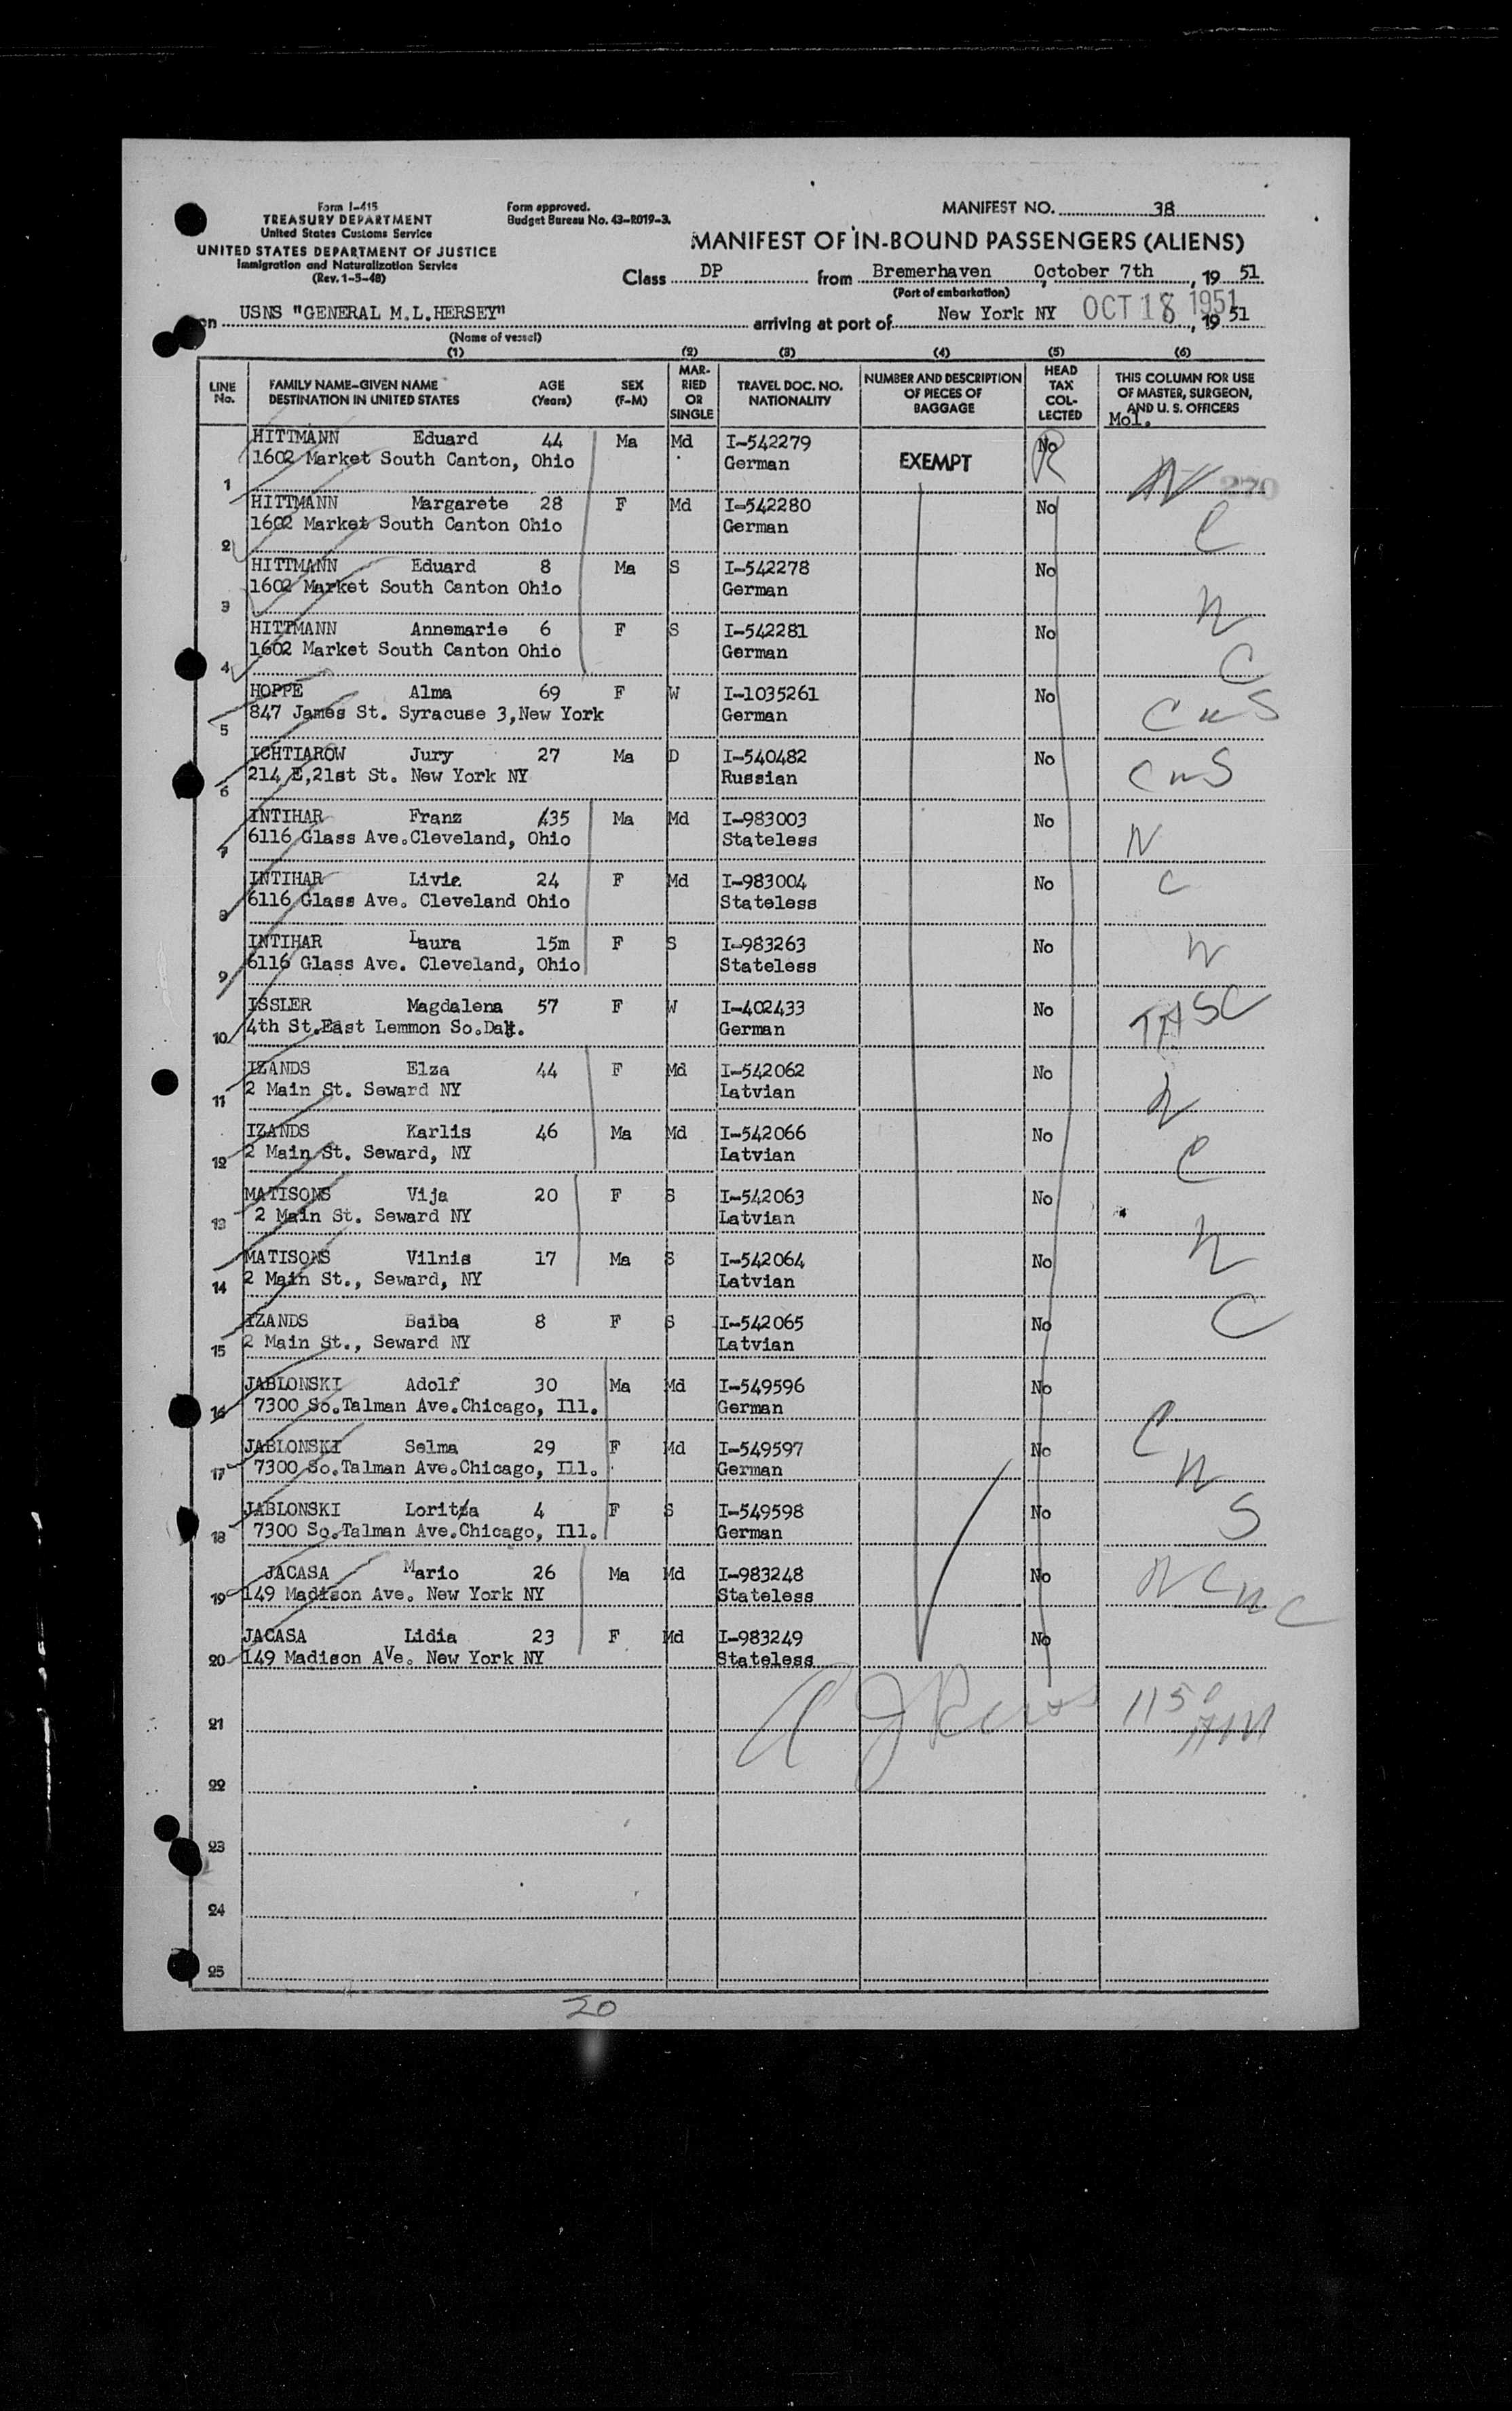 Form I-415
TREASURY DEPARTMENT
United States Customs Service
UNITED STATES DEPARTMENT OF JUSTICE
Immigration and Naturalization Service
(Rev. 1-5-48)
Form approved.
Budget Bureau No. 43-R019-3.
MANIFEST NO. 38
MANIFEST OF IN-BOUND PASSENGERS (ALIENS)
Class DP from Bremerhaven, October 7th, 19 51
(Port of embarkation)
on USNS "GENERAL M.L.HERSEY" arriving at port of New York NY OCT 18 1951, 19 51
(Name of vessel)
(1) (2) (3) (4) (5) (6)
LINE No. FAMILY NAME-GIVEN NAME DESTINATION IN UNITED STATES AGE (Years) SEX (F-M) MARRIED OR SINGLE TRAVEL DOC. NO. NATIONALITY NUMBER AND DESCRIPTION OF PIECES OF BAGGAGE HEAD TAX COLLECTED THIS COLUMN FOR USE OF MASTER, SURGEON, AND U. S. OFFICERS
Mol.
HITTMANN Eduard 44 Ma Md I-542279 EXEMPT No
1 1602 Market South Canton, Ohio German N 270
HITTMANN Margarete 28 F Md I-542280 No
2 1602 Market South Canton Ohio German C
HITTMANN Eduard 8 Ma S I-542278 No
3 1602 Market South Canton Ohio German N
HITTMANN Annemarie 6 F S I-542281 No
4 1602 Market South Canton Ohio German C
HOPPE Alma 69 F W I-1035261 No
5 847 James St. Syracuse 3,New York German C N S
ICHTIAROW Jury 27 Ma D I-540482 No
6 214 E,21st St. New York NY Russian C N S
INTIHAR Franz 35 Ma Md I-983003 No
7 6116 Glass Ave.Cleveland, Ohio Stateless N
INTIHAR Livia 24 F Md I-983004 No
8 6116 Glass Ave. Cleveland Ohio Stateless C
INTIHAR Laura 15m F S I-983263 No
9 6116 Glass Ave. Cleveland, Ohio Stateless N
ISSLER Magdalena 57 F W I-402433 No
10 4th St.East Lemmon So.Dak. German
IZANDS Elza 44 F Md I-542062 No
11 2 Main St. Seward NY Latvian N
IZANDS Karlis 46 Ma Md I-542066 No
12 2 Main St. Seward, NY Latvian C
MATISONS Vija 20 F S I-542063 No
13 2 Main St. Seward NY Latvian N
MATISONS Vilnis 17 Ma S I-542064 No
14 2 Main St., Seward, NY Latvian
IZANDS Baiba 8 F S I-542065 No C
15 2 Main St., Seward NY Latvian
JABLONSKI Adolf 30 Ma Md I-549596 No
16 7300 So.Talman Ave.Chicago, Ill. German C
JABLONSKI Selma 29 F Md I-549597 No
17 7300 So.Talman Ave.Chicago, Ill. German N
JABLONSKI Loritza 4 F S I-549598 No
18 7300 So.Talman Ave.Chicago, Ill. German S
JACASA Mario 26 Ma Md I-983248 No
19 149 Madison Ave. New York NY Stateless N C N C
JACASA Lidia 23 F Md I-983249 No
20 149 Madison AVe. New York NY Stateless
21
22
23
24
25
20